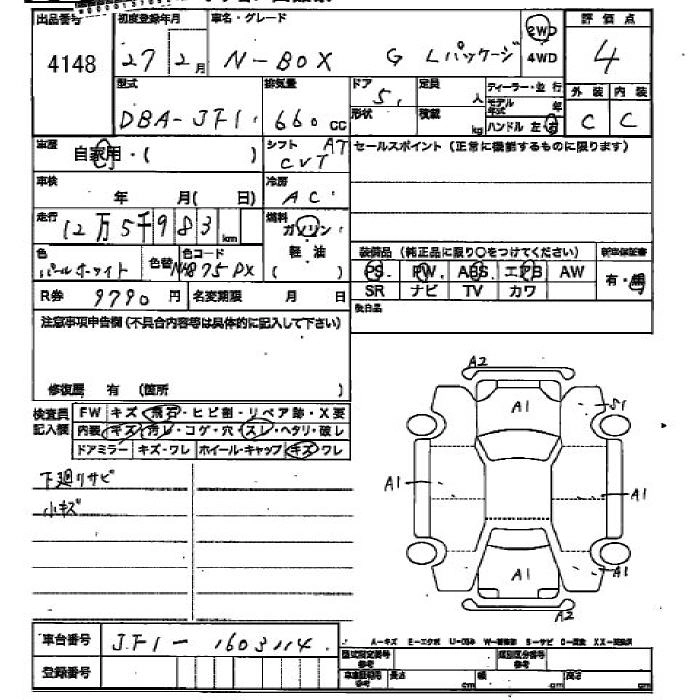 出品番号 初度登録年月 車名・グレード 評価点
4148 27 2月 N-BOX G Lパッケージ 2WD 4WD 4
型式 排気量 ドア 定員 ディーラー・並行 外装 内装
DBA-JF1 660cc 5 人 モデル年式 年 C C
形状 積載 kg ハンドル 左 右
車歴 自家用・( ) シフト AT CVT セールスポイント (正常に機能するものに限ります)
車検 年 月( 日) 冷房 AC
走行 12万5千983km 燃料 ガソリン 軽油 ( )
色 パールホワイト 色替 色コード NH875PX
装備品 (純正品に限り○をつけてください) 新車保証書
PS PW ABS エアB AW 有・無
SR ナビ TV カワ
R券 9790円 名変期限 月 日 後日品
注意事項申告欄 (不具合内容等は具体的に記入して下さい)
修復歴 有 (箇所 )
検査員記入欄
FW キズ・飛石・ヒビ割・リペア跡・X要
内装 キズ・汚レ・コゲ・穴・スレ・ヘタリ・破レ
ドアミラー キズ・ワレ ホイール・キャップ キズ・ワレ
下廻りサビ
小キズ
A2
A1 S1
A1 A1
A1 A1
A2
車台番号 JF1-1603114
A-キズ E-エクボ W-補修跡 S-サビ C-腐食 XX-交換済
登録番号
型式指定番号 参考 類別区分番号 参考
長さ cm 幅 cm 高さ cm